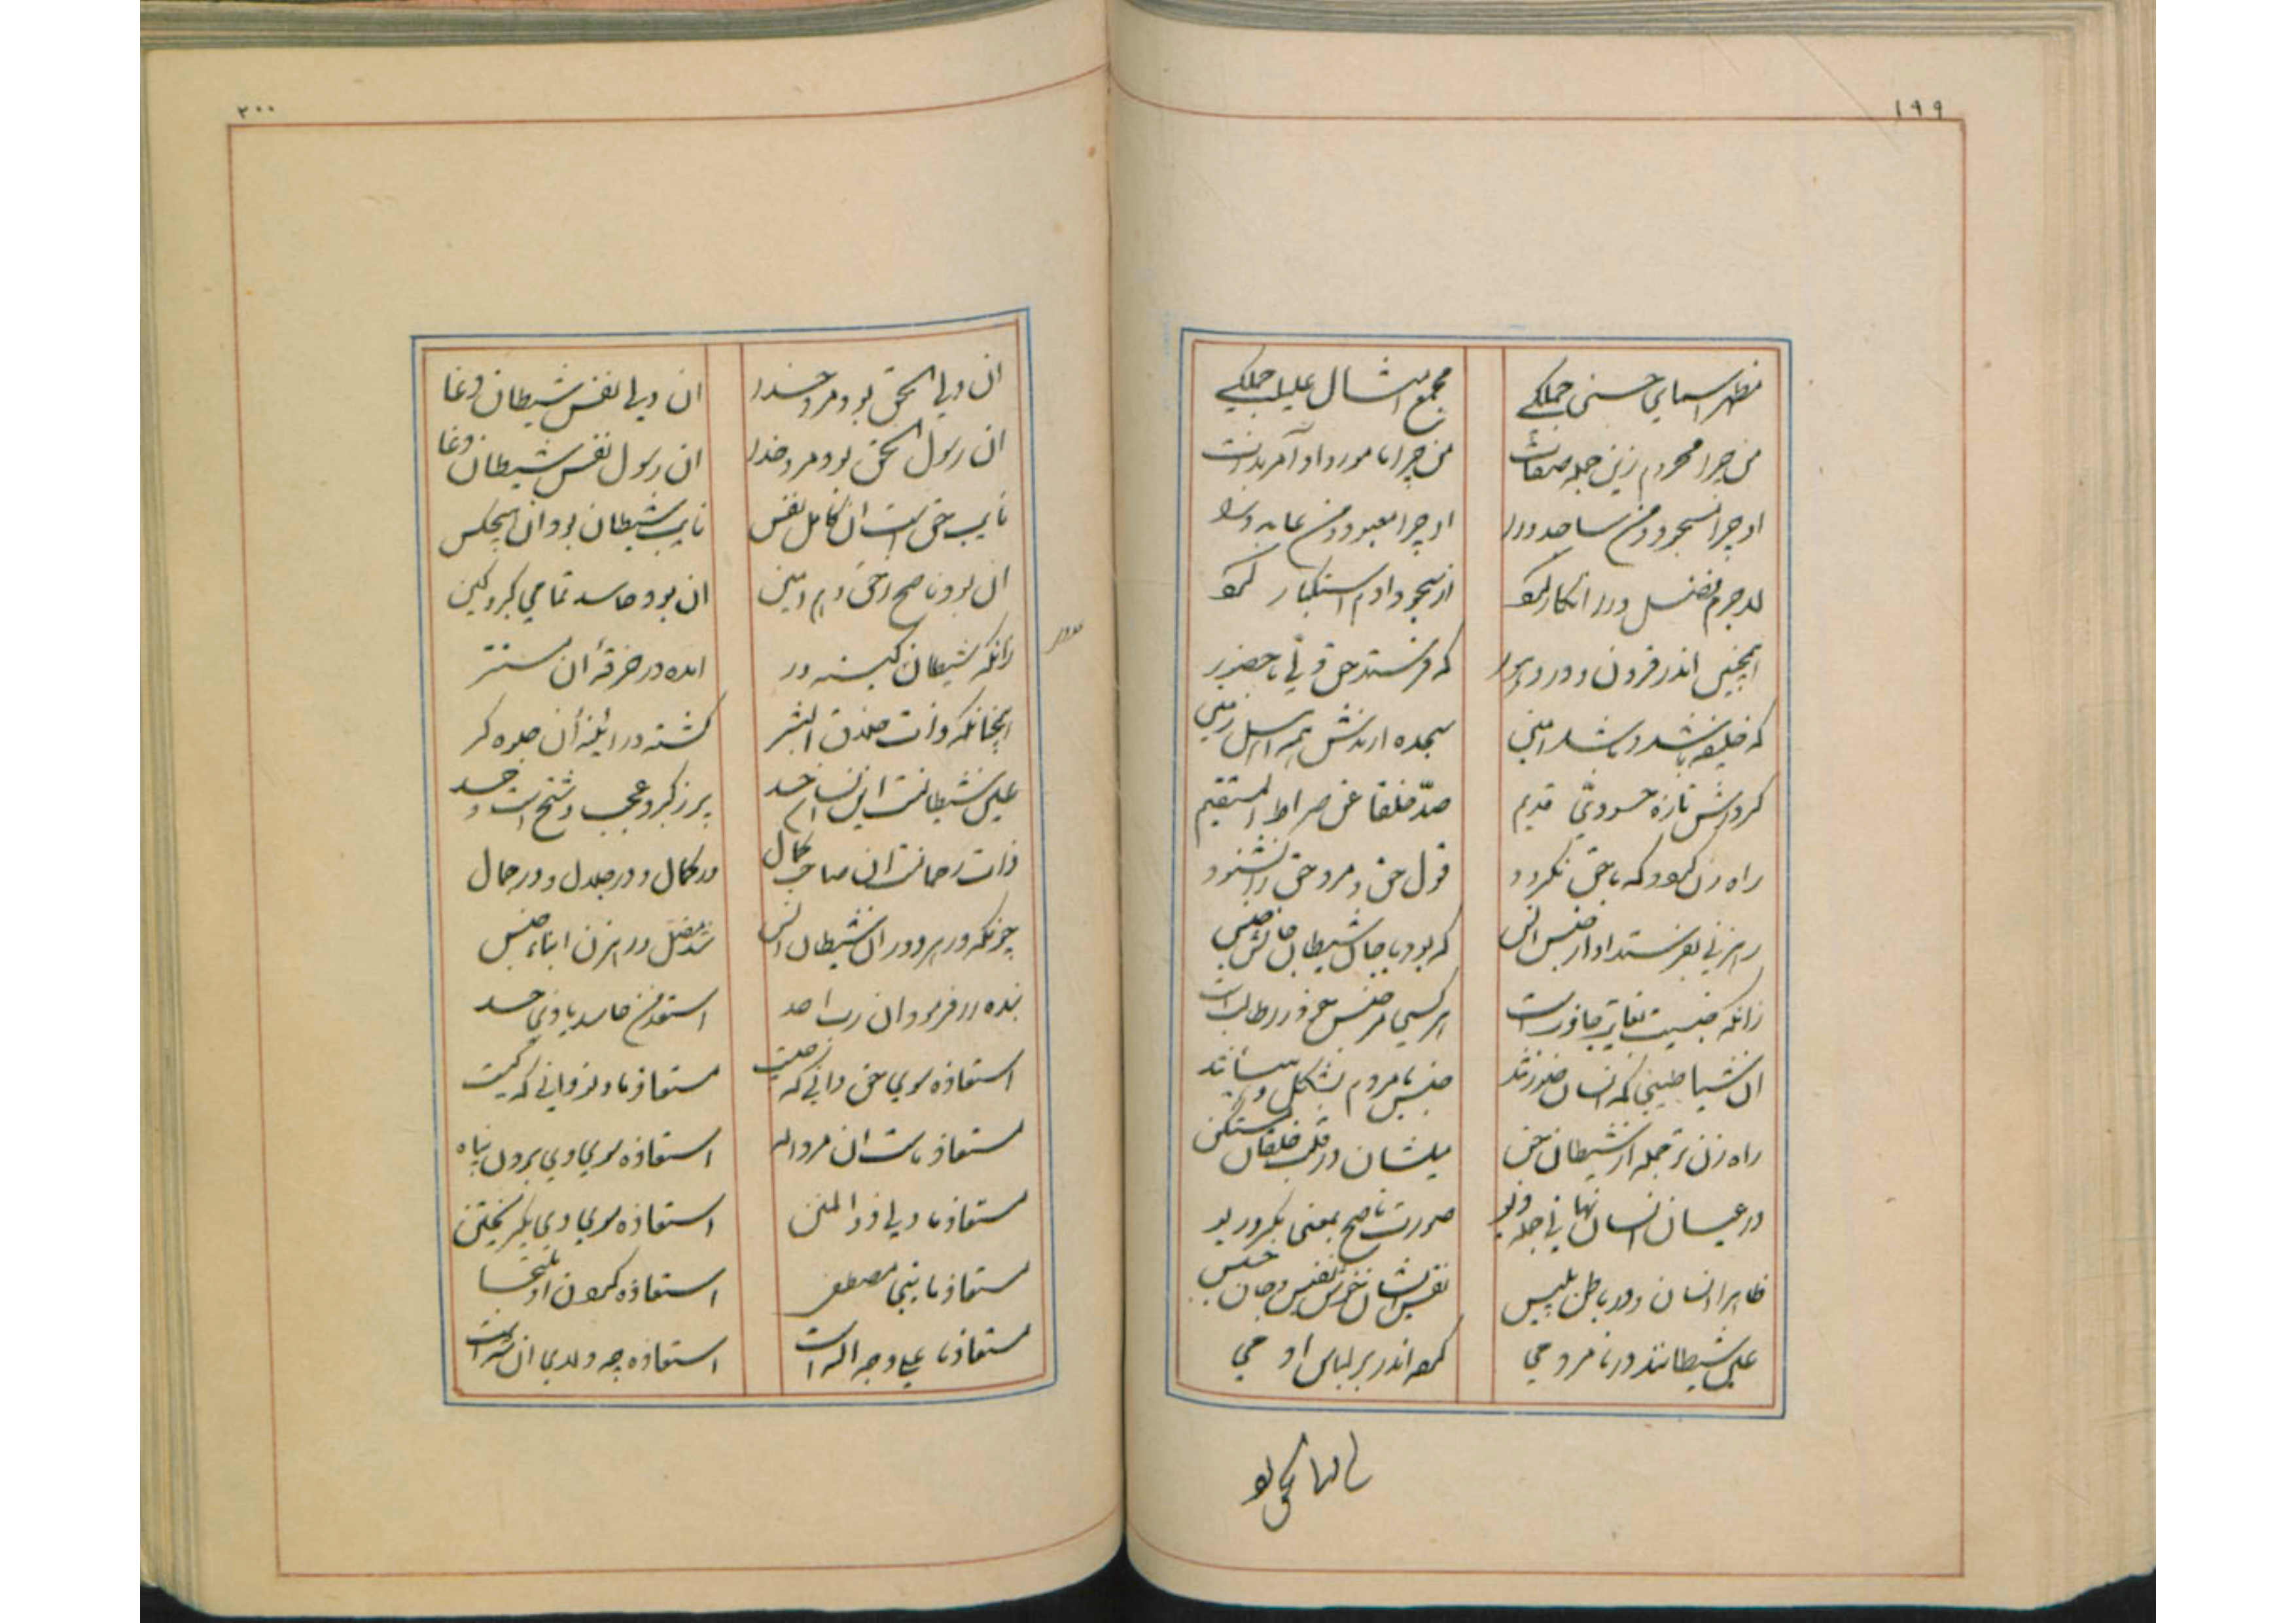 ۱۹۹
مظهر اسمای حسنی جملگی مجمع امثال علیا جملگی
من چرا محروم زین جمله صفات من چرا مامور و او آمر بذات
او چرا مسجود و من ساجد ورا او چرا معبود و من عابد ورا
لاجرم فضل ورا انکار کرد از سجود آدم استکبار کرد
همچنین اندر قرون و دور
که خلیفه باشد و باشد امین سجده ارندش همه اهل زمین
کردش تازه حسودی قدیم صد خلقا عن صراط المستقیم
راه زن کرد و که با حق نگرود قول حق و مرد حق را نشنود
رهزنی بفرستد او از جنس انس که بود با جان شیطان جانش جنس
زانکه جنسیت بغایت جاذب است هر کسی مر جنس خود را طالب است
ان شیاطینی که انسان صورتند جنس با مردم بشکل و
راه زن تر جمله از شیطان جن میلشان در قلب خلقان مستکن
در عیان انسان نهانی جمله دیو صورت ناصح بمعنی مکر و ریو
ظاهرا انسان و در باطن بلیس نفسشان نفس و جان خسیس
علی شیطانند در نامردمی کرده اندر بر لباس آدمی
ان ولی الحق بو
۲۰۰
ان ولی الحق بود مرد خدا ان ولی نفس شیطان دغا
ان رسول الحق بود مرد خدا ان رسول نفس شیطان دغا
نایب حق است ان کامل نفس نایب شیطان بود ان هیچکس
ان بود ناصح رحیم و هم امین ان بود حاسد تمامی کبر و کین
زانکه شیطان کینه ور امده در خرقه ان مستتر
همچنانکه ذات خلاق البشر گشته در ائینه ان جلوه گر
علی شیطانست این پر ز کبر و عجب و شح است و حسد
ذات رحمانست ان صاحب کمال در کمال و در جلال و در جمال
چونکه در هر دور ان شیطان انس شد مضل و رهزن ابناء جنس
بنده را فرمود ان رب احد استعذ من حاسد یا ذی حسد
استعاذه سوی حق دانی که چیست مستعاذ ما و تو دانی که کیست
مستعاذ ماست ان مرد اله استعاذه سوی وی بردن پناه
مستعاذ ما ولی ذو المنن استعاذه سوی وی بگریختن
مستعاذ ما نبی مصطفی استعاذه کردن او التجا
مستعاذ ما علی وجه اله است استعاذه چه ولای ان شه است